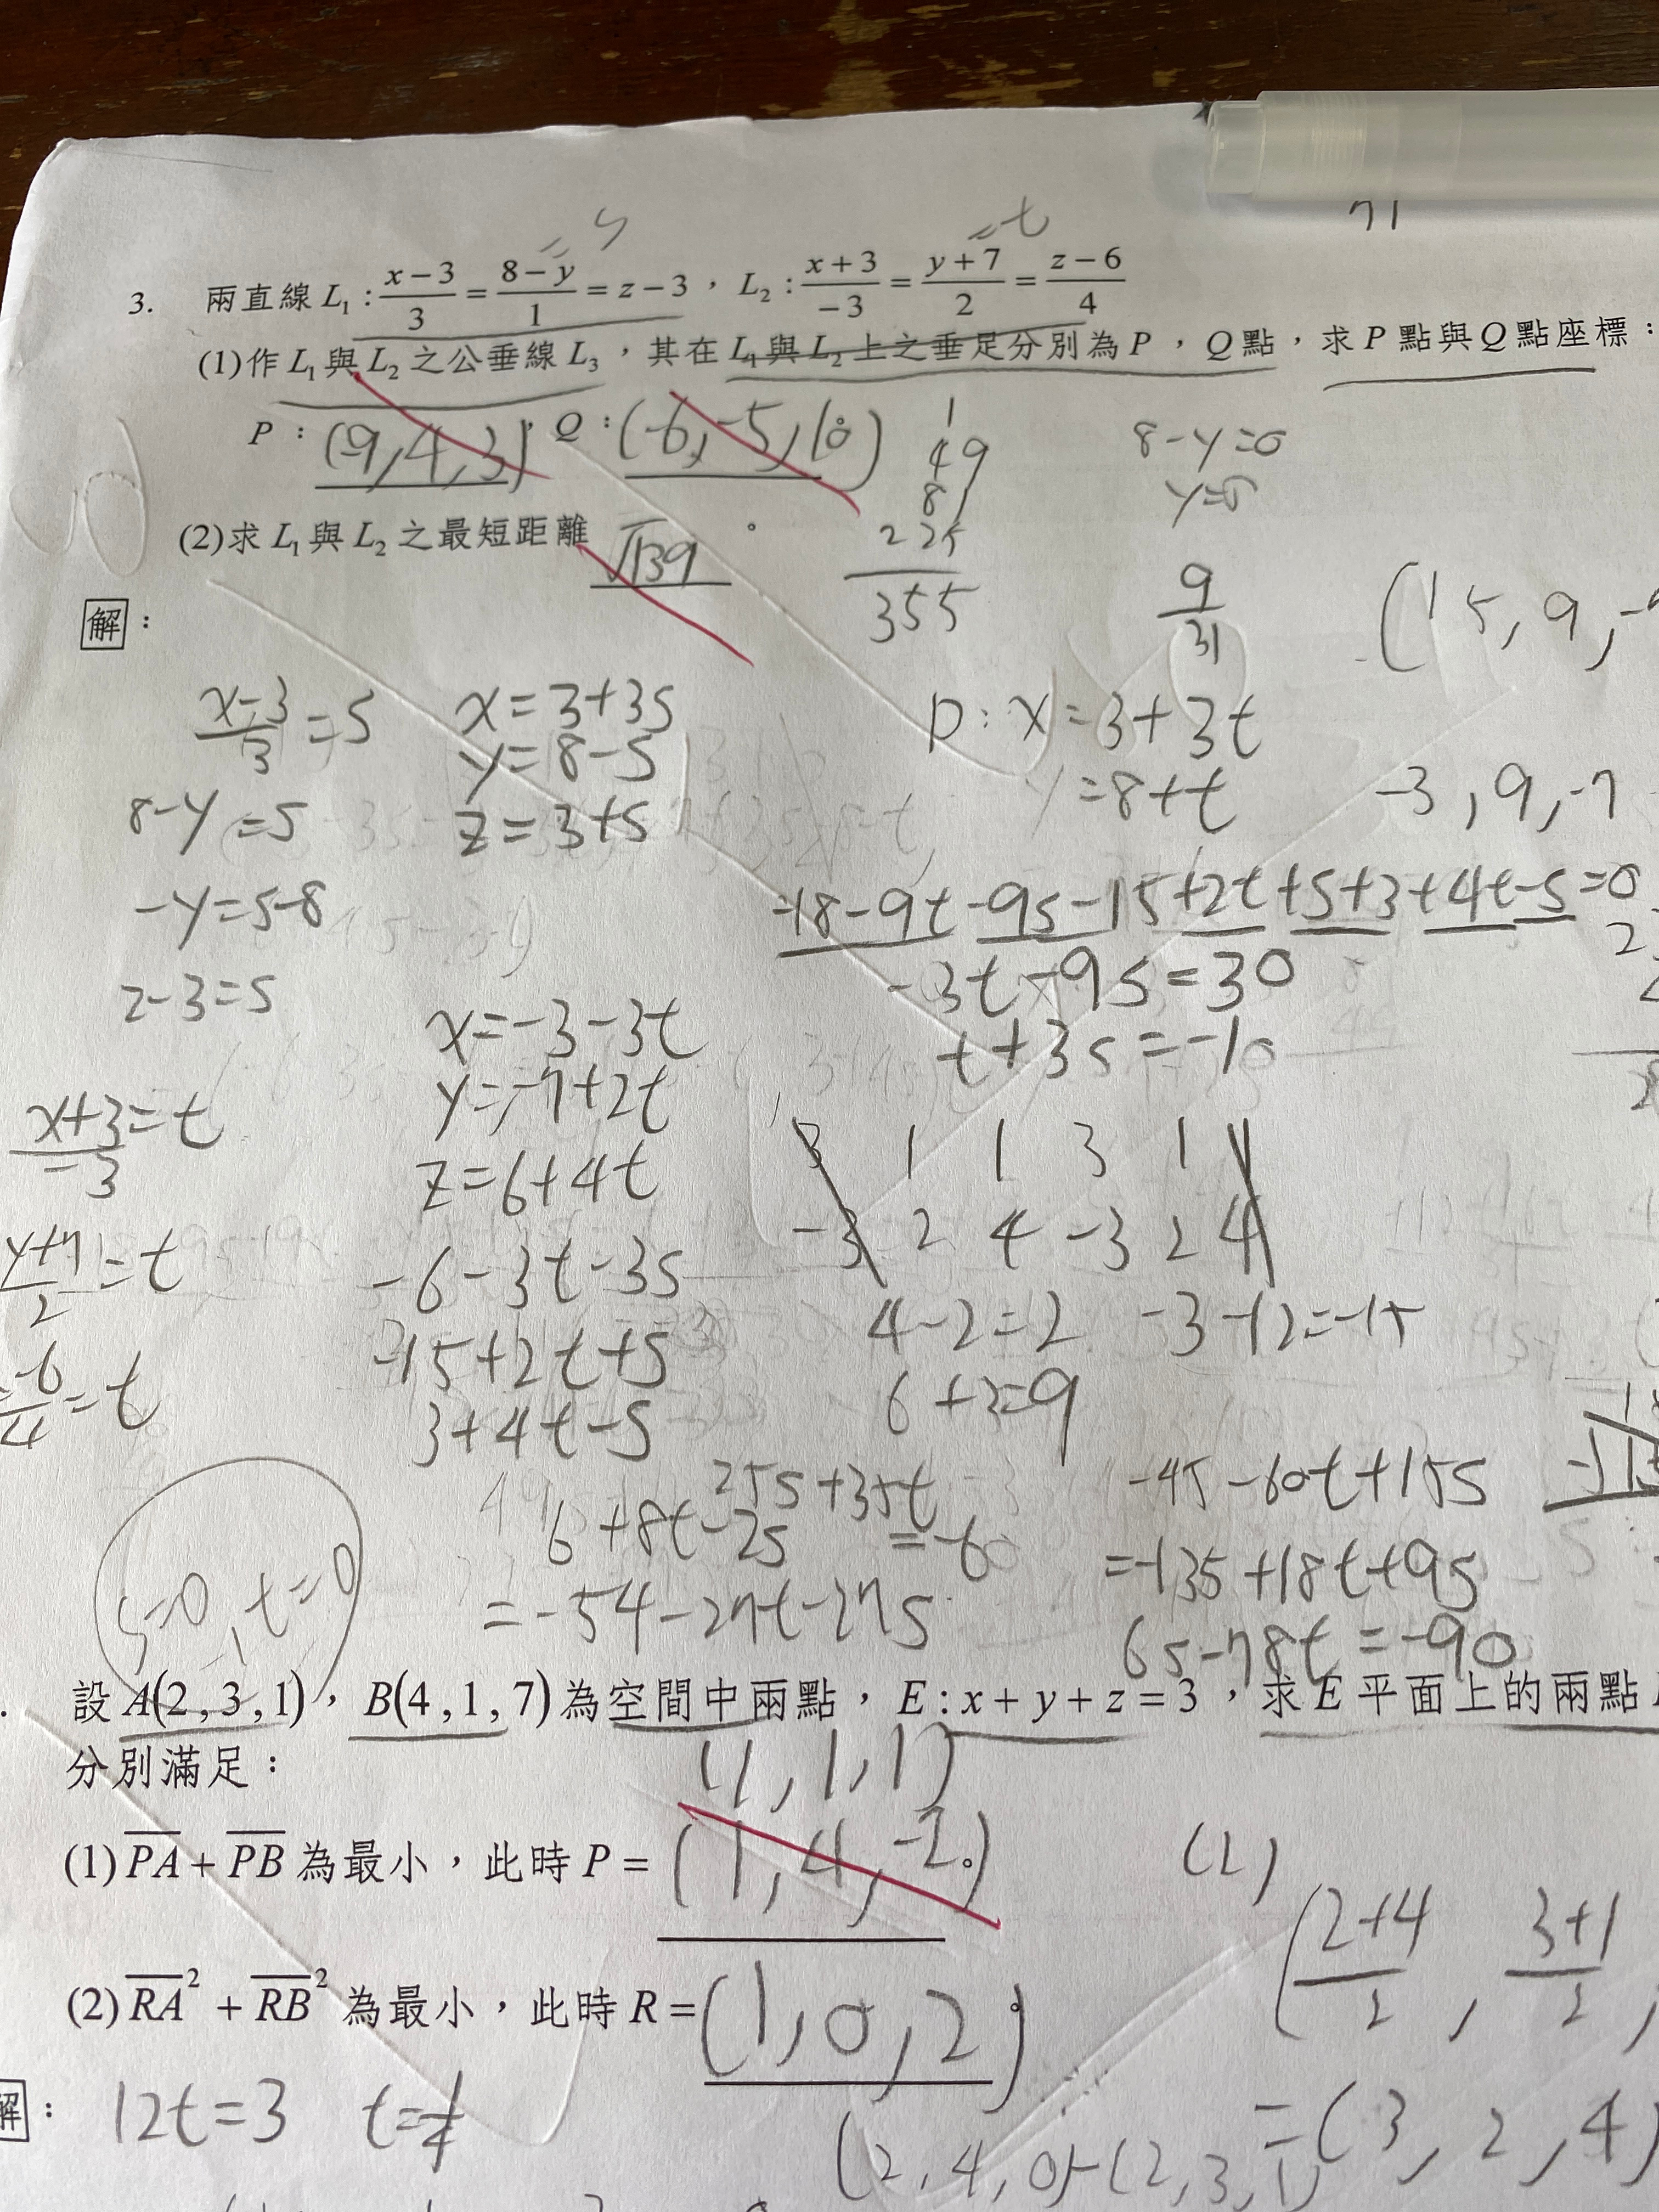 = s
= t
3. 兩直線 L₁ : (x-3)/3 = (8-y)/1 = z-3 , L₂ : (x+3)/-3 = (y+7)/2 = (z-6)/4
(1)作 L₁ 與 L₂ 之公垂線 L₃ , 其在 L₁ 與 L₂ 上之垂足分別為 P , Q 點 , 求 P 點與 Q 點座標 :
P : (-9,4,3) , Q : (-6,-5,10) 。
1
49
81
225
355
8-y=0
y=8
(2)求 L₁ 與 L₂ 之最短距離 √139 。
9/31
(15, 9, -
解 :
(x-3)/3 = s
x=3+3s
y=8-s
z=3+s
8-y=s
-y=s-8
z-3=s
P: x=3+3t
y=8+t
-3, 9, -7
-18-9t-9s-15+2t+s+3+4t-s=0
-3t-9s=30
t+3s=-10
x=-3-3t
y=-7+2t
z=6+4t
(x+3)/-3=t
(y+7)/2=t
-6/4=t
3 1 1 3 1 1
-3 2 4 -3 2 4
4-2=2 -3-12=-15
6+3=9
-6-3t-3s
-15+2t+s
3+4t-s
25s+35t
=-60
6+8t-2s
=-54-27t-27s
-45-60t+15s
=-135+18t+9s
6s-78t=-90
s=0, t=0
設 A(2,3,1) , B(4,1,7) 為空間中兩點 , E:x+y+z=3 , 求 E 平面上的兩點
分別滿足 :
(4,1,1)
(1) PA + PB 為最小 , 此時 P = (1,4,-2) 。
(2)
((2+4)/2, (3+1)/2,
(2) RA² + RB² 為最小 , 此時 R = (1,0,2) 。
=(3,2,4)
解 : 12t=3 t=1/4
(2,4,0)-(2,3,1)